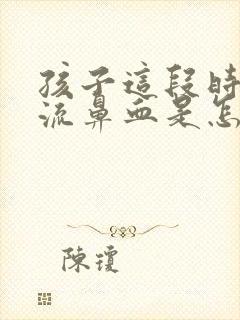 孩子這段時
流鼻血是怎
陳瓊